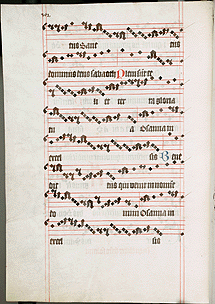 tus Sanc tus
dominus deus sabaoth Pleni sunt ce
li et ter ra gloria
a Osanna in
excel sis Bene
dic tus qui venit in nomine
do mini Osanna in
excel sis